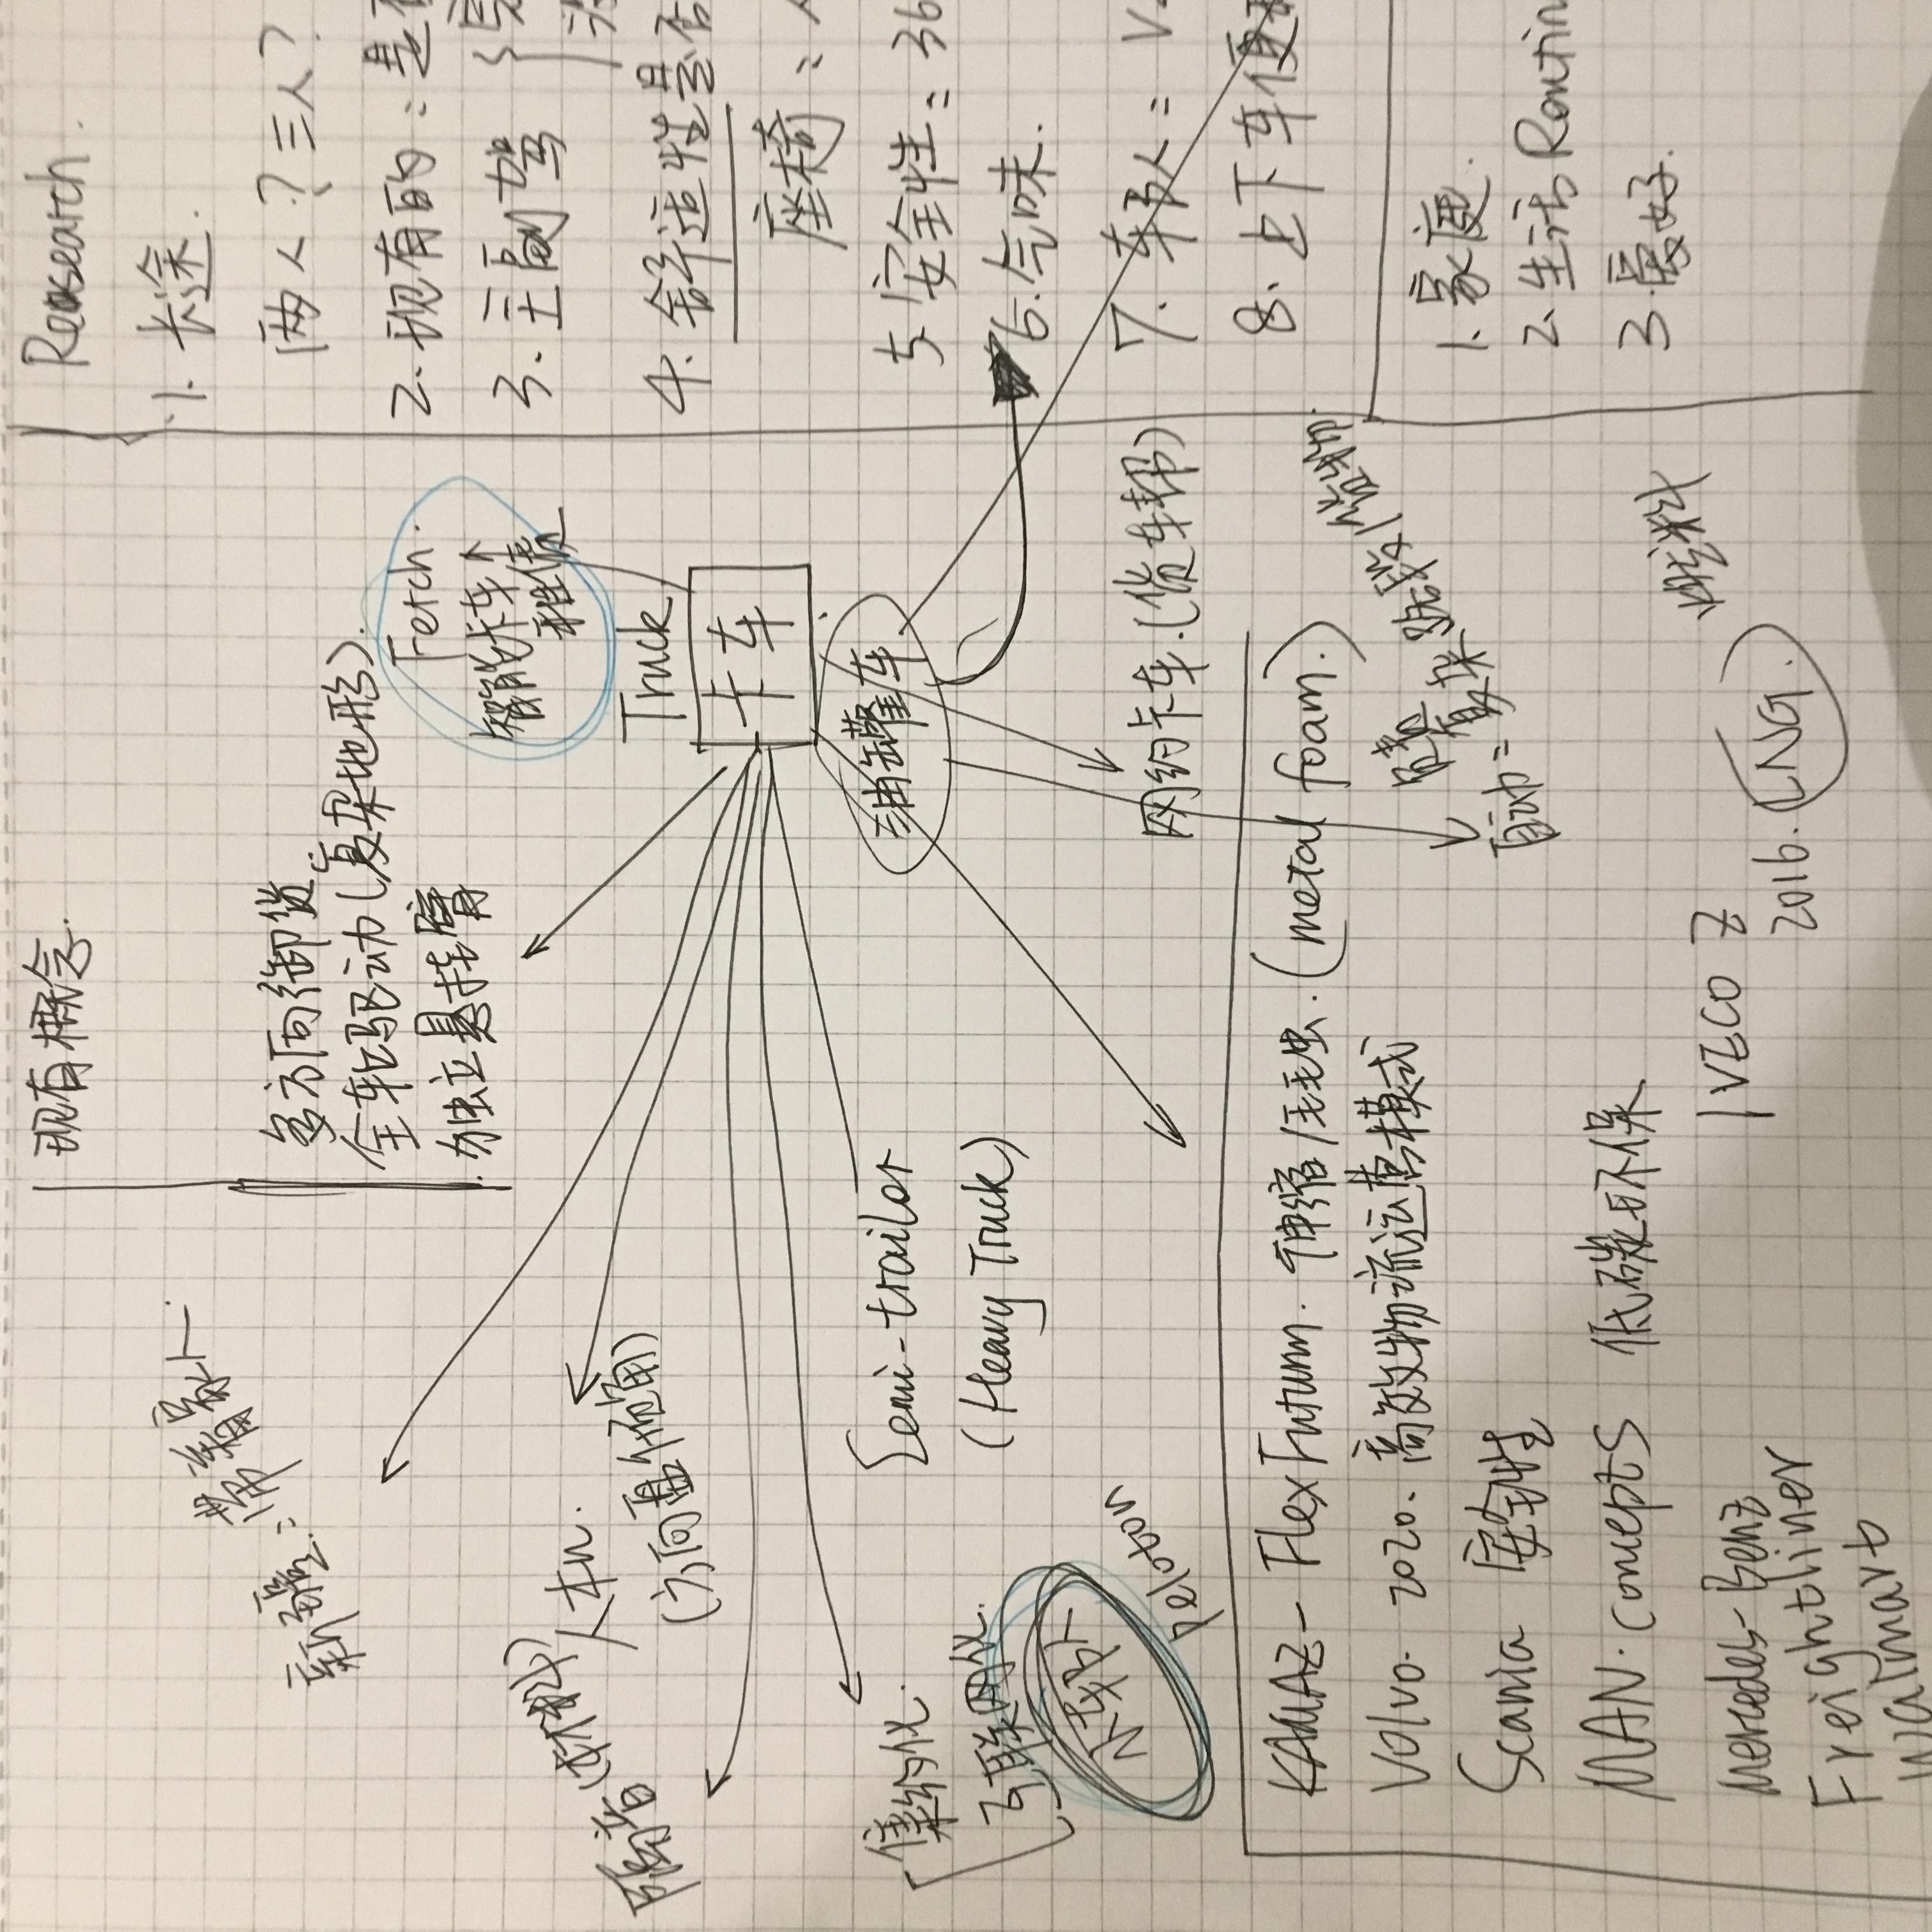 现有概念.
新疆:带着家人.
多方向御货.
全轮驱动(复杂地形).
独立悬挂臂
Fetch.
智能卡车↑
隔音(材料)
人机.
(方向盘倾角)
Truck
卡车
油罐车
集约化.
互联网化.
小车队
peloton
Semi-trailer
(Heavy Truck)
网约卡车.(货车帮)
KAMAZ- FlexFuturum. 伸缩/毛毛虫.(metal foam.)
Volvo. 2020. 高效物流运营模式
Scania 安全性
MAN. concepts 低碳环保
Mercedes-Benz
Freightliner
Walmart
IVECO Z
2016. LNG.
燃料
负责
自动= 复杂路段/货物.
Reasearch.
1. 长途.
两人?三人?
2. 现有的: 是
3. 主副驾
4. 舒适性是否
座椅:
5. 安全性: 36
6. 气味.
7. 车队:
8. 上下车便
1. 家庭.
2. 生活Routin
3. 爱好.